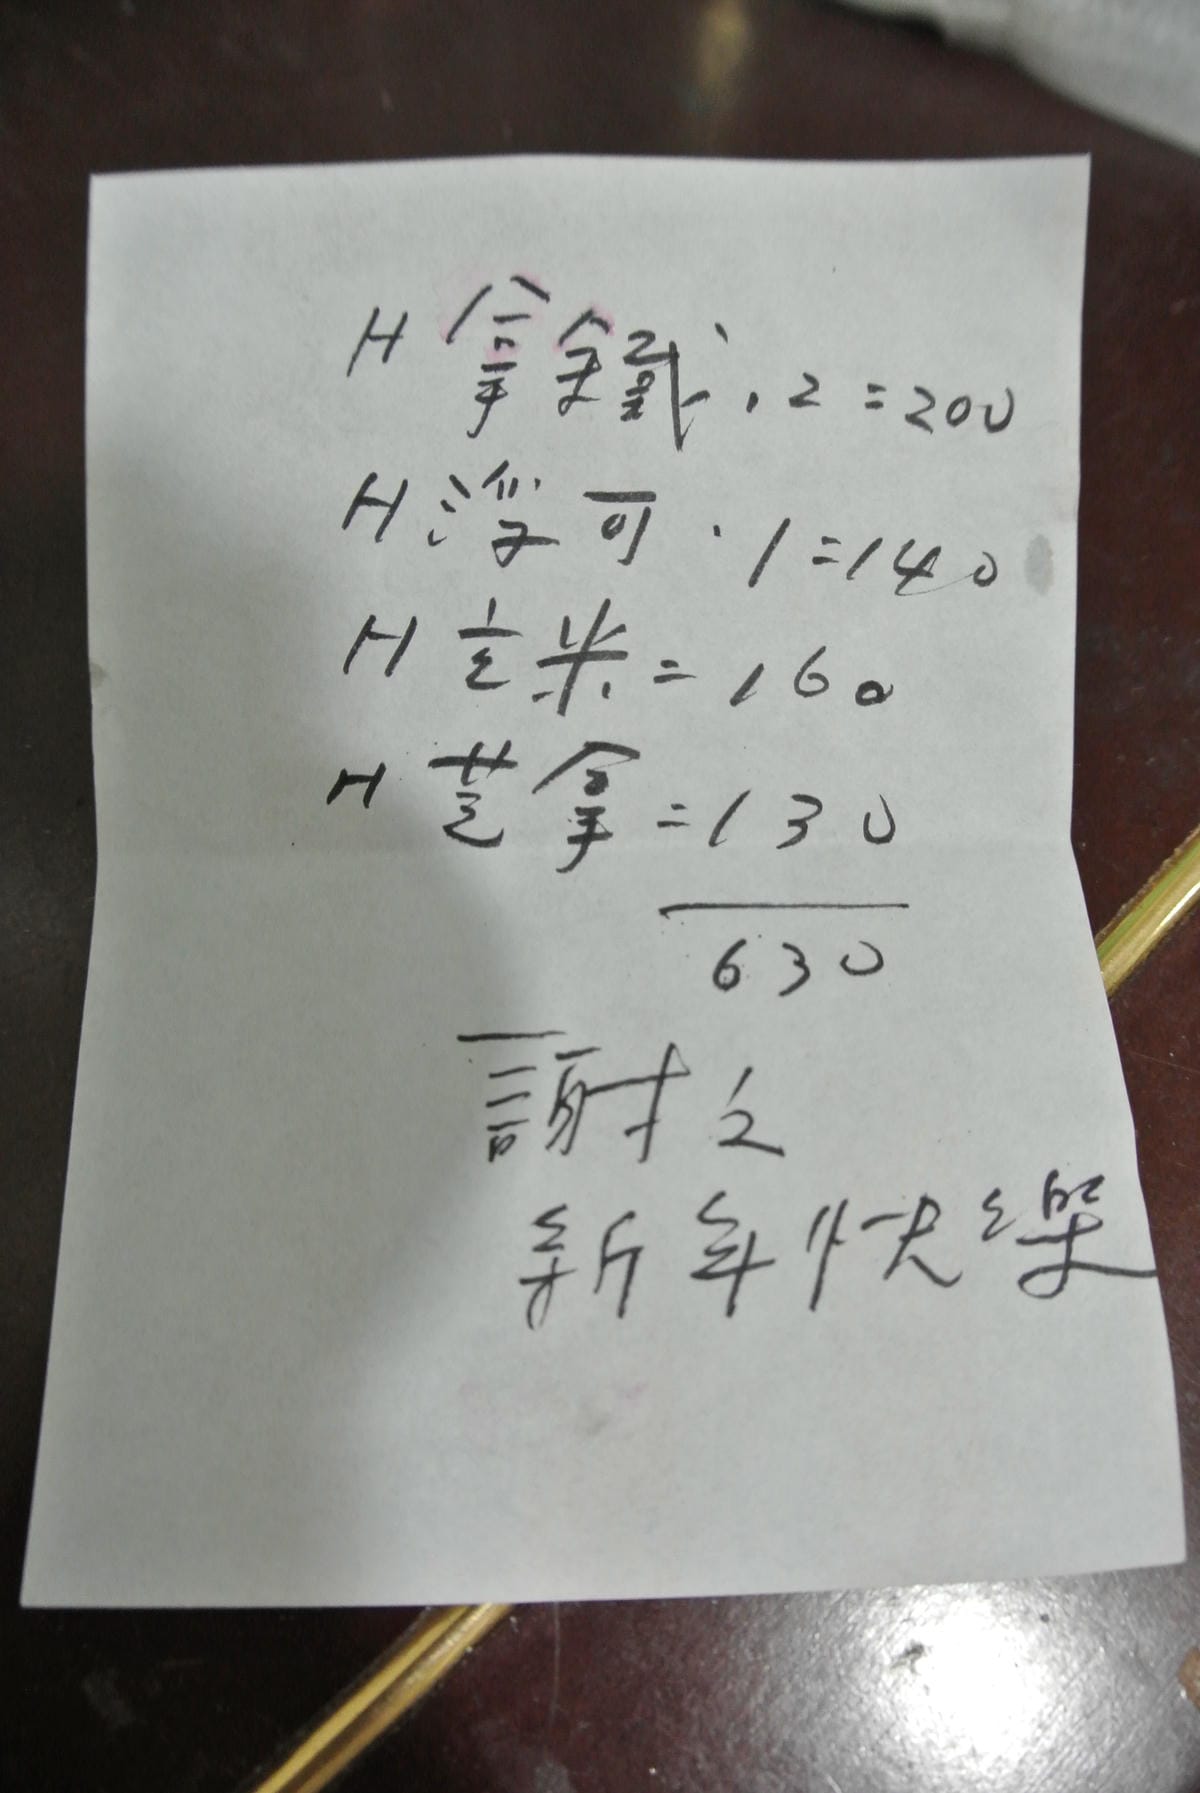 H 拿鐵.2=200
H 浮可.1=140
H 玄米=160
H 芝拿=130
630
謝之
新年快樂